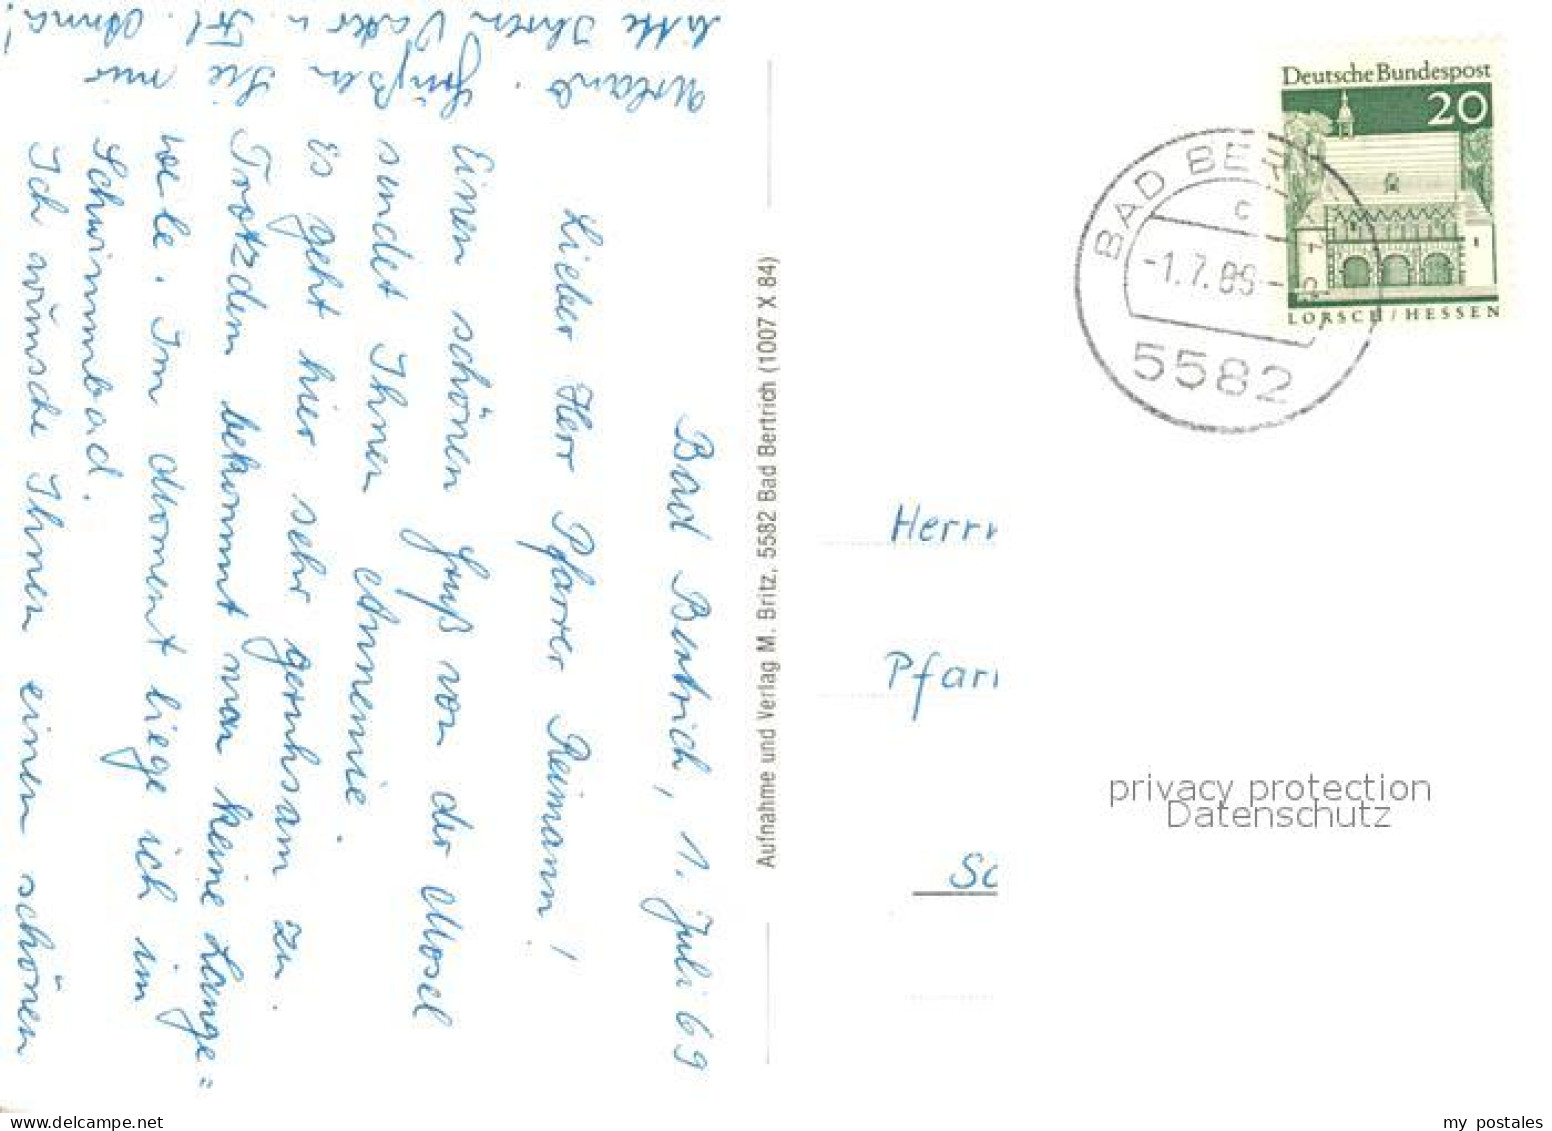 Bad Bertrich, 1. Juli 69
Lieber Herr Pfarrer Reimann!
Einen schönen Gruß von der Mosel
sendet Ihnen Annemie.
Es geht hier sehr geruhsam zu.
Trotzdem bekommt man keine Lange=
weile. Im Moment liege ich im
Schwimmbad.
Ich wünsche Ihnen einen schönen
Urlaub. Grüßen Sie mir
bitte Ihren Vater u. Frl. Anna!
Aufnahme und Verlag M. Britz, 5582 Bad Bertrich (1007 X 84)
Deutsche Bundespost
20
LORSCH/HESSEN
BAD BER
c
-1.7.69-
5582
Herrn
Pfarr
Sc
privacy protection
Datenschutz
www.delcampe.net
my_postales